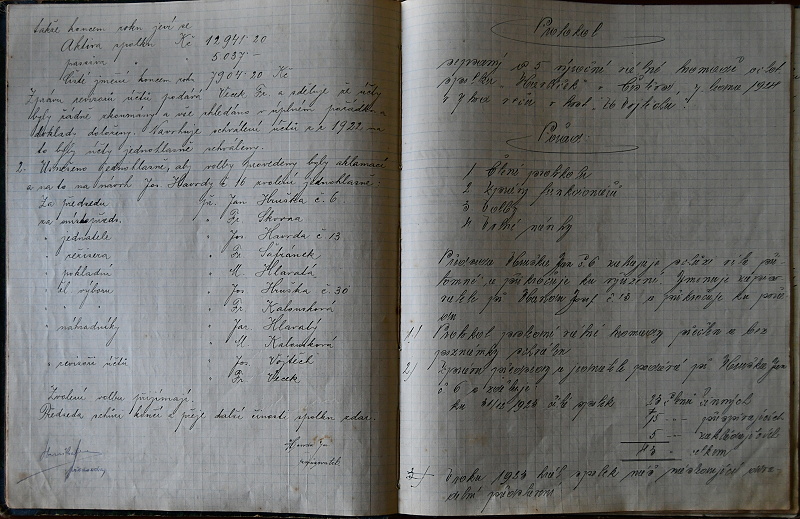 takže koncem roku jeví se
Aktiva spolku Kč 12941·20
passiva " " 5037·–
Čisté jmění koncem roku 7904·20 Kč
Zprávu revisorů účtů podává Vacek Fr. a sděluje že účty
byly řádně zkoumány a vše shledáno v úplném pořádku a
doklady doloženy. Navrhuje schválení účtů z r. 1922 na
to byly účty jednohlasně schváleny.
2. Usneseno jednohlasně, aby volby provedeny byly aklamací
a na to na návrh Jos. Havrdy č 16 zvoleni jednohlasně:
Za předsedu Jan Hruška č. 6
na místopředs. " Fr. Skovrna
" jednatele " Jos Havrda č 13
" režisera " Fr. Šafránek
" pokladní " M. Hlavatá
" čl. výboru " Jos Hruška č. 30
" " " Fr. Kalousková
" náhradníky " Jar. Hlavatý
" " " M. Kalousková
" revisoři účtů " Jos. Vojtěch
" " " Fr. Vacek
Zvolení volbu přijímají.
Předseda schůzi končí a přeje další činnosti spolku zdar.
předseda
zapisovatel
Protokol
sepsaný o 5 výroční valné hromadě ochot.
spolku "Havlíček" v února 1924
v 7 hod. večer v host. " Vojtěcha".
Pořad:
1 Čtení protokolu
2 Zprávy funkcionářů
3 Volby
4 Volné návrhy
Předseda Hruška Jan č. 6 zahajuje schůzi vítá pří-
tomné a přikročuje ku vyřízení. Jmenuje zapiso-
vatele př Havrda Josef č 13 a přikročuje ku pořa-
du
1.) Protokol poslední valné hromady přečten a bez
poznámky schválen
2.) Zprávu předsedy a jednatele podává př Hruška Jan
č 6 a sděluje:
ku 31/12 1923 čítá spolek 23 členů činných
15 " přispívajících
5 " zakládajících
43 " celkem
3.) V roku 1923 hrál spolek náš následující diva-
delní představení